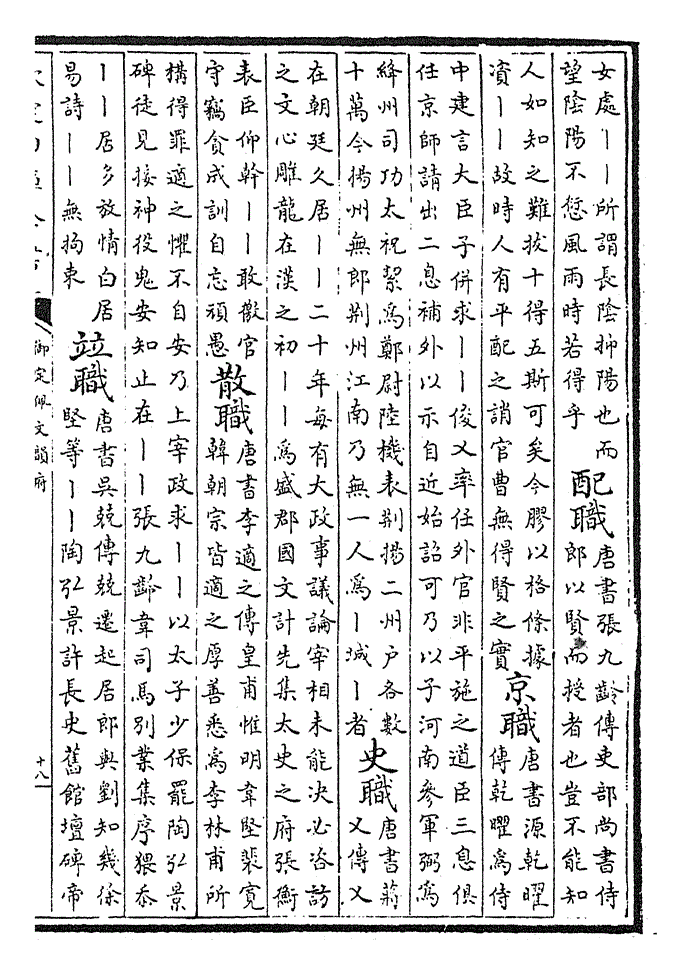 女處丨丨所謂長陰抑陽也而
望陰陽不愆風雨時若得乎
配職
唐書張九齡傳吏部尚書侍
郎以賢而授者也豈不能知
人如知之難拔十得五斯可矣今膠以格條據
資丨丨故時人有平配之誚官曹無得賢之實
京職
唐書源乾曜
傳乾曜為侍
中建言大臣子併求丨丨俊乂率任外官非平施之道臣三息俱
任京師請出二息補外以示自近始詔可乃以子河南參軍弼為
絳州司功太祝絜為鄭尉陸機表荆揚二州户各數
十萬今揚州無郎荆州江南乃無一人為丨城丨者
史職
唐書蔣
乂傳乂
在朝廷久居丨丨二十年每有大政事議論宰相未能决必咨訪
之文心雕龍在漢之初丨丨為盛郡國文計先集太史之府張衡
表臣仰幹丨丨敢徼官
守竊貪成訓自忘頑愚
散職
唐書李適之傳皇甫惟明韋堅裴寛
韓朝宗皆適之厚善悉為李林甫所
構得罪適之懼不自安乃上宰政求丨丨以太子少保罷陶弘景
碑徒見接神役鬼安知止在丨丨張九齡韋司馬別業集序猥忝
丨丨居多放情白居
易詩丨丨無拘束
竝職
唐書吳兢傳兢遷起居郎與劉知幾徐
堅等丨丨陶弘景許長史舊館壇碑帝
御定佩文韻府
十八